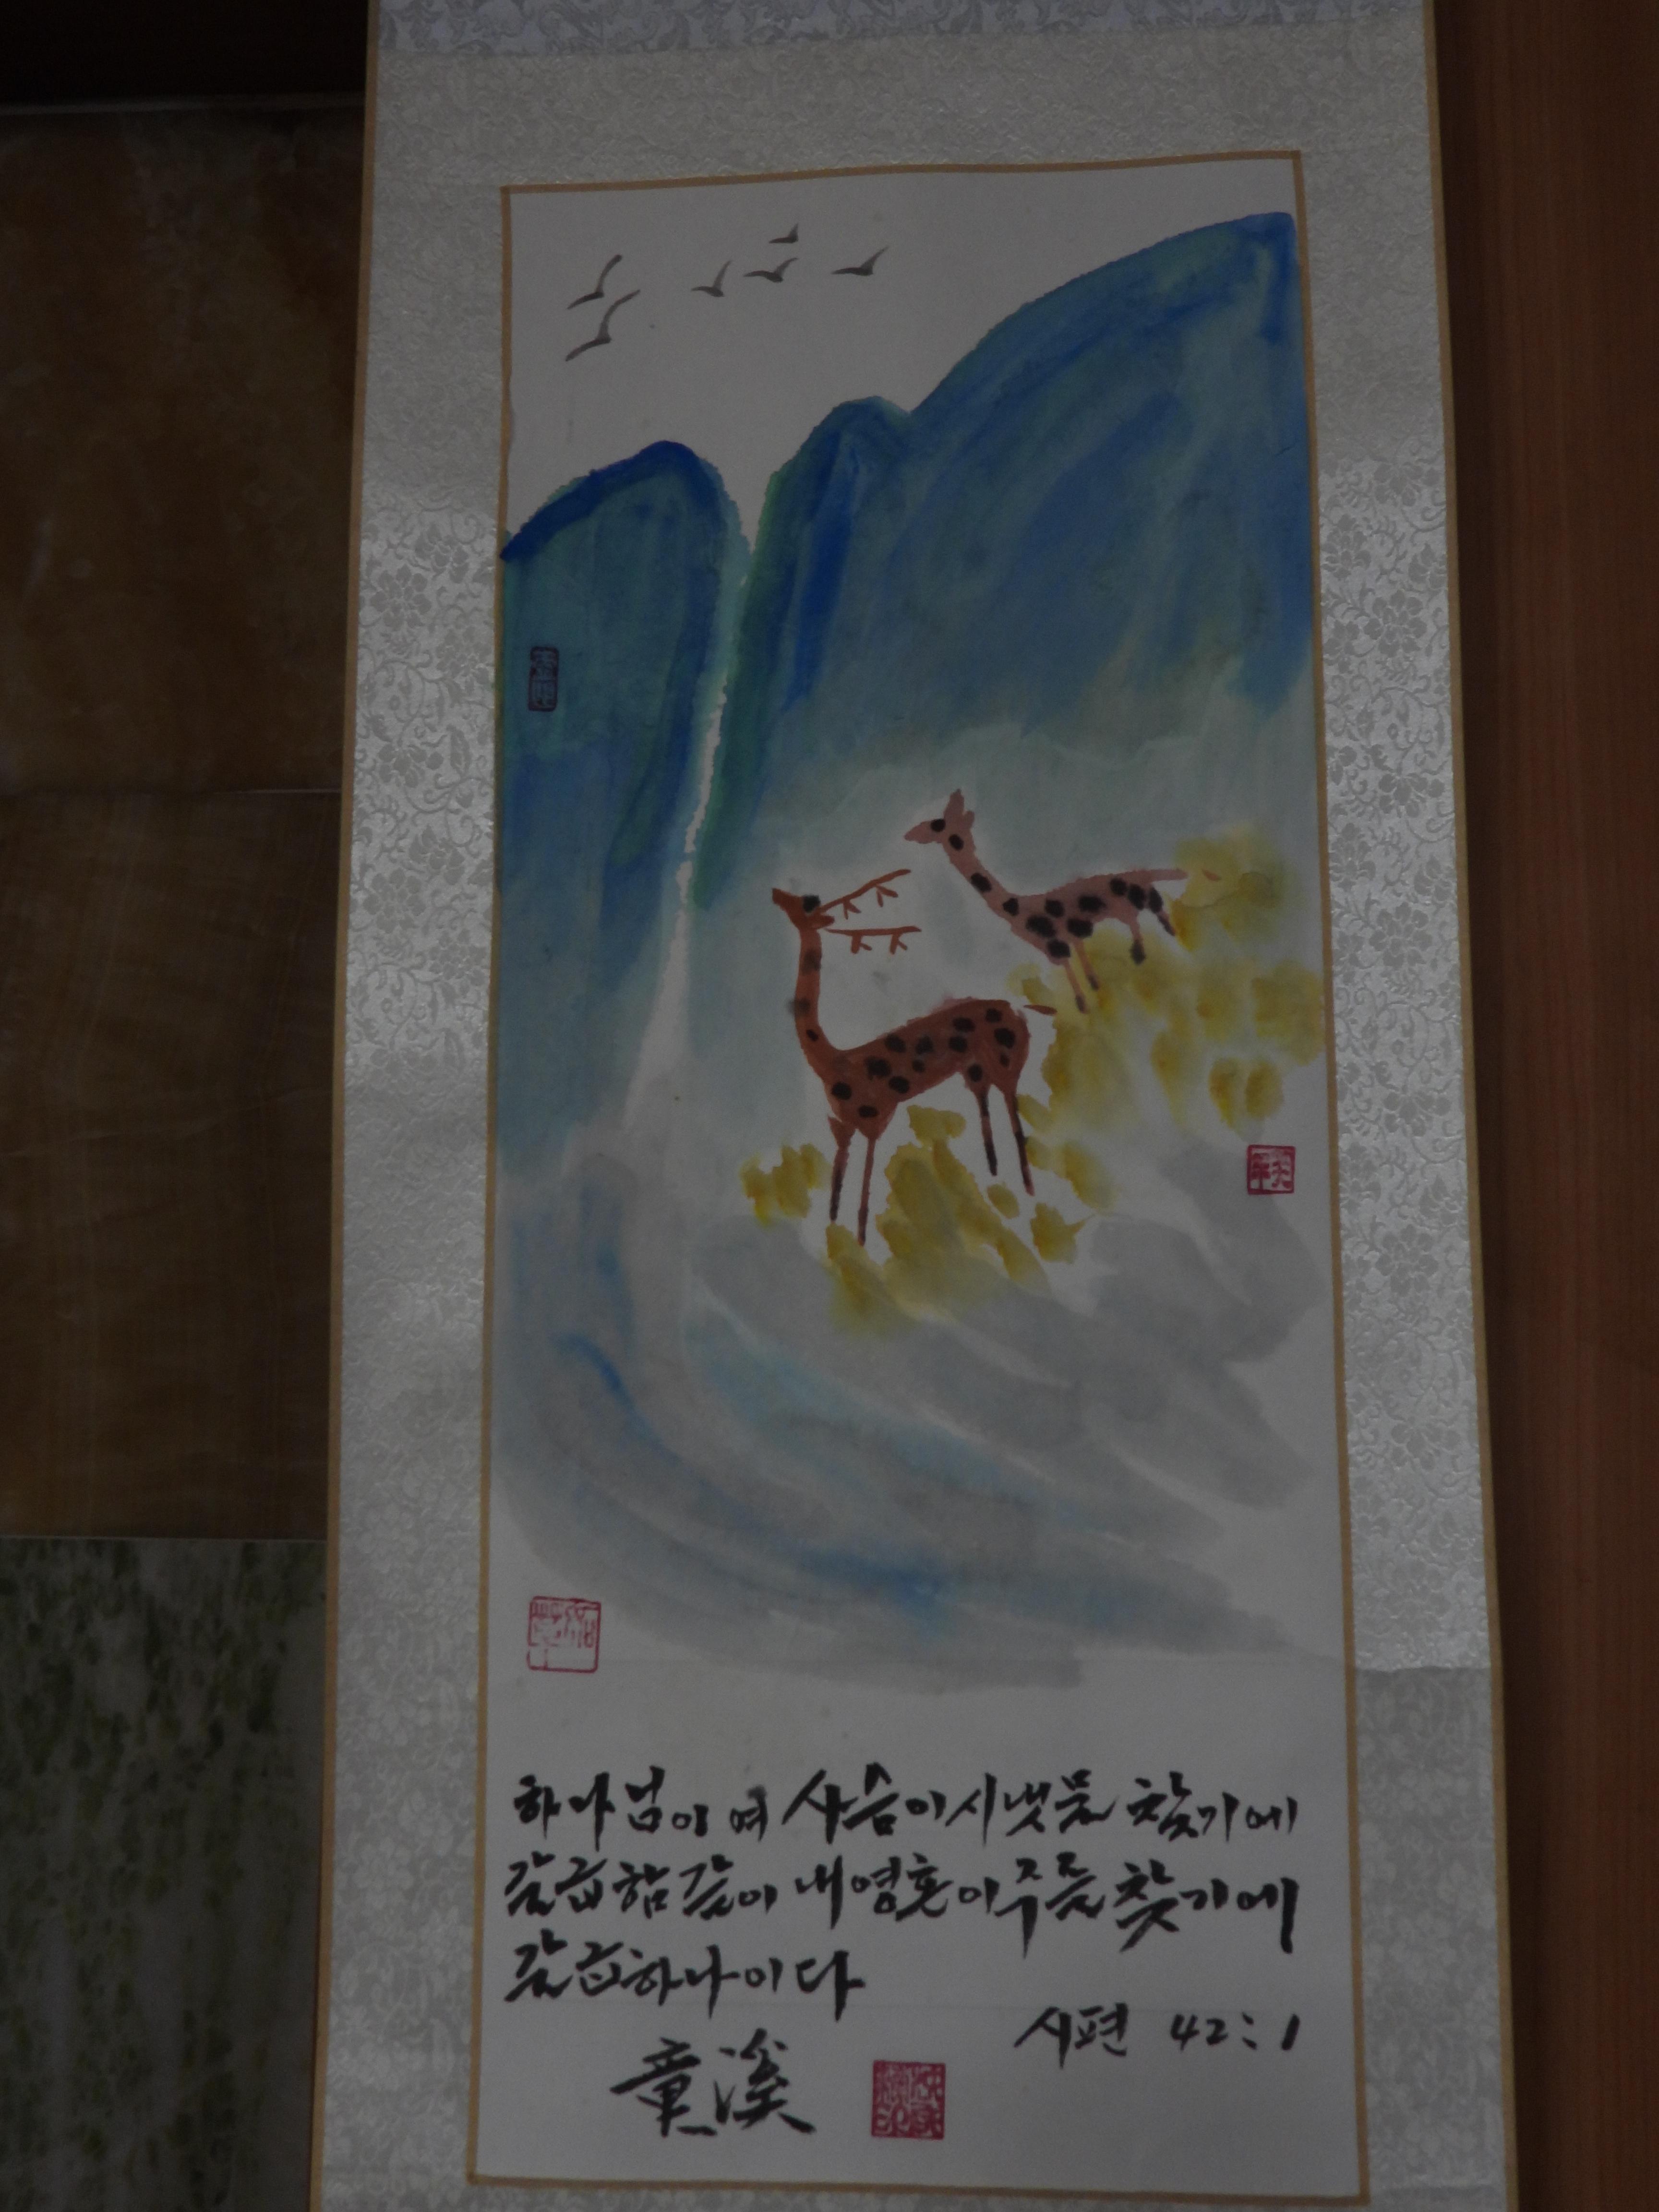 하나님이여 사슴이 시냇물 찾기에
갈급함 같이 내 영혼이 주를 찾기에
갈급하나이다
시편 42:1
童溪